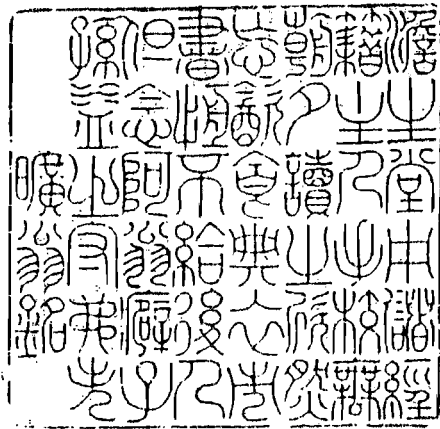 澹生堂中儲經
籍主人手校無
朝夕讀之欣然
忘飲食典衣市
書恒不給後人
但念阿翁癖子
孫益之守弗失
曠翁銘